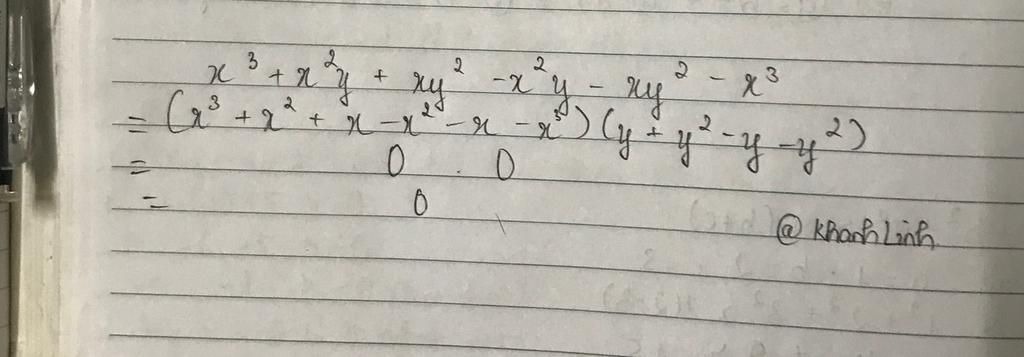 x³ + x²y + xy² - x²y - xy² - x³
= (x³ + x² + x - x² - x - x³) (y + y² - y - y²)
= 0 . 0
= 0
@ KhanhLinh